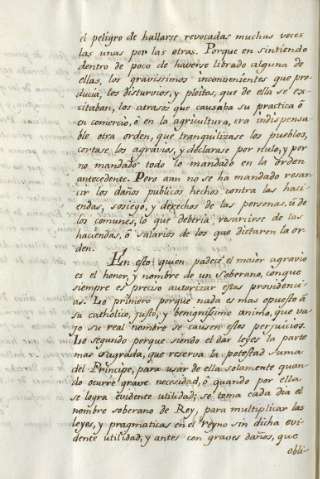 el peligro de hallarse revocadas muchas voces
las unas por las otras. Porque en sintiendo
dentro de poco de haverse librado alguna de
ellas, los gravissimos inconvenientes que pro-
ducia, los disturvios, y pleitos, que de ella se ex-
citaban, los atrasos que causaba su practica ò
en comercio, ò en la agricultura, era indispensa-
ble otra orden, que tranquilizase los pueblos,
cortase los agravios, y declarase por nulo, y por
no mandado todo lo mandado en la orden
antecedente. Pero aun no se ha mandado resar-
cir los daños publicos hechos contra las haci-
endas, sosiego, y derechos de las personas, ù de
los comunes, lo que deberia resarcirse de las
haciendas, ò salarios de los que dictaron la or-
den.
En esto quien padece el maior agravio
es el honor, y nombre de un Soberano, con que
siempre es preciso autorizar estas providenci-
as. Lo primero porque nada es mas opuesto à
su catholico, justo, y benignissimo animo, que va-
jo su real nombre se causen estos perjuicios.
Lo segundo porque siendo el dar leyes la parte
mas sagrada, que reserva la potestad suma
del Principe, para usar de ella solamente quan-
do ocurre grave necesidad, ò quando por ella
se logra evidente utilidad; se toma cada dia el
nombre soberano de Rey, para multiplicar las
leyes, y pragmaticas en el reyno sin dicha evi-
dente utilidad, y antes con graves daños, que
obli-